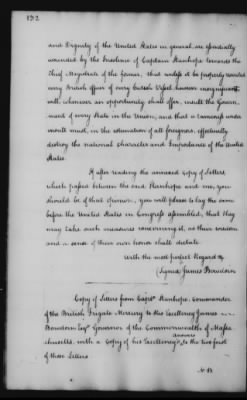 132
and Dignity of the United States in general, are essentially
wounded by the Insolence of Captain Stanhope towards the
Chief Magistrate of the former, that unless it be properly resented
every British officer of every British Vessel however insignificant
will, whenever an opportunity shall offer, insult the Govern-
ment of every State in the Union, and that a
must, in the estimation of all foreigners, effectually
destroy the national character and Importance of the United
States.
If after reading the annexed copy of Letters
which passed between the said Stanhope and me, you
should be of that opinion, you will please to lay the same
before the United States in Congress assembled, that they
may take such measures concerning it, as their wisdom
and a sense of their own honor shall dictate.
With the most perfect Regard &c
(Signed) James Bowdoin
Copy of Letters from Capt. Stanhope, Commander
of the British Frigate Mercury to His Excellency James
Bowdoin Esqr Governor of the Commonwealth of Massa
chusetts, with a Copy of his Excellency's Answers to the two first
of those Letters